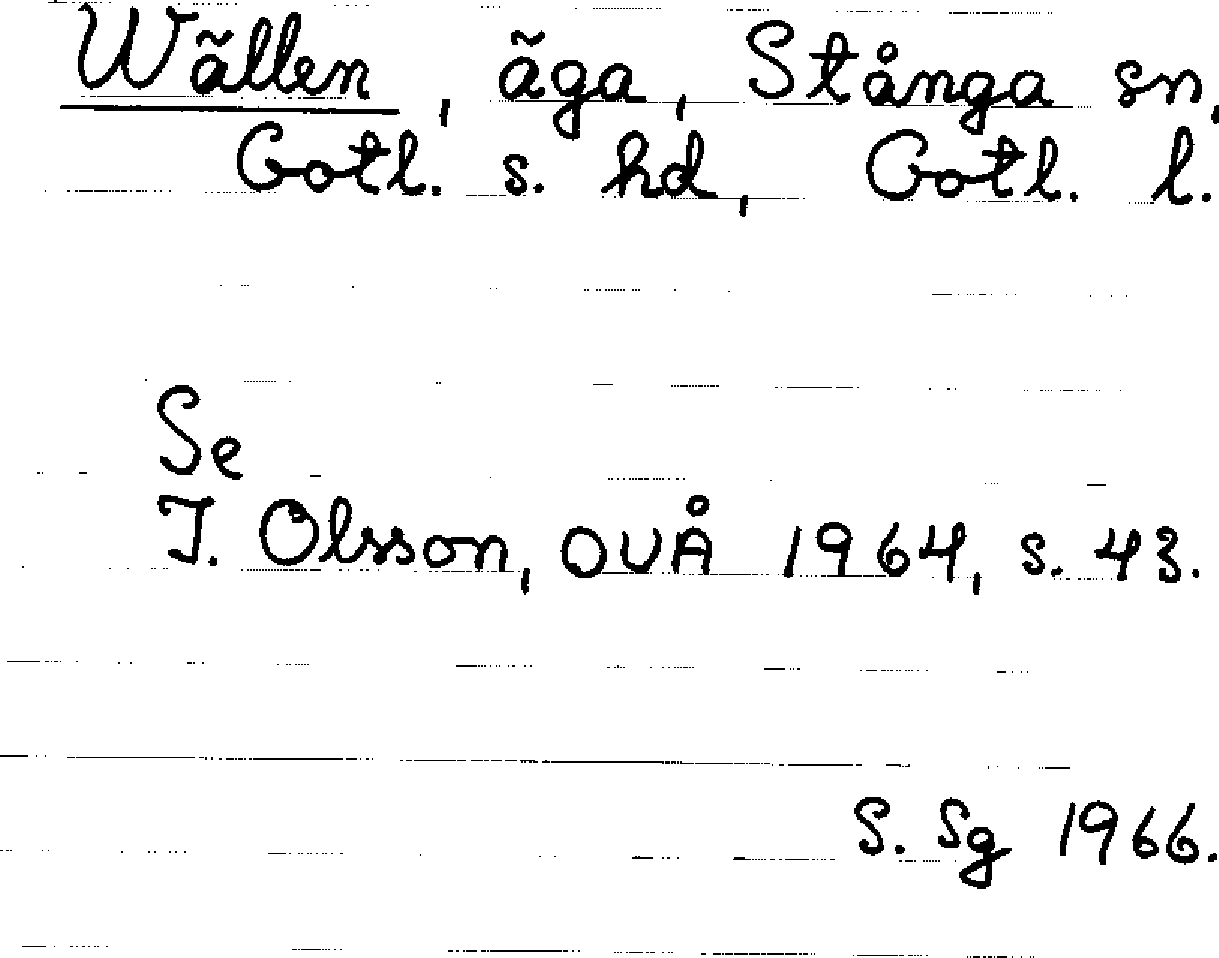 Wällen, äga, Stånga sn,
Gotl. s. hd, Gotl. l.
Se
I. Olsson, OUÅ 1964, s. 43.
S. Sg 1966.